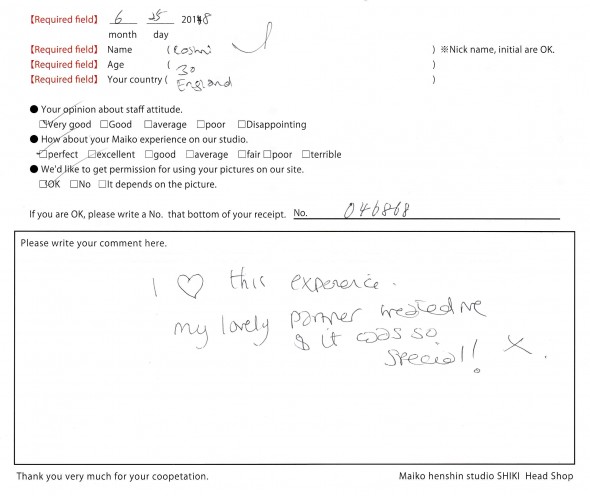 【Required field】 6 25 2018
month day
【Required field】 Name ( ) ※Nick name, initial are OK.
【Required field】 Age ( 30 )
【Required field】 Your country ( England )
● Your opinion about staff attitude.
□Very good □Good □average □poor □Disappointing
● How about your Maiko experience on our studio.
□perfect □excellent □good □average □fair □poor □terrible
● We'd like to get permission for using your pictures on our site.
□OK □No □It depends on the picture.
If you are OK, please write a No. that bottom of your receipt. No. 046868
Please write your comment here.
I ♡ this experence.
my lovely partner treated me
& it was so
special! X.
Thank you very much for your coopetation. Maiko henshin studio SHIKI Head Shop